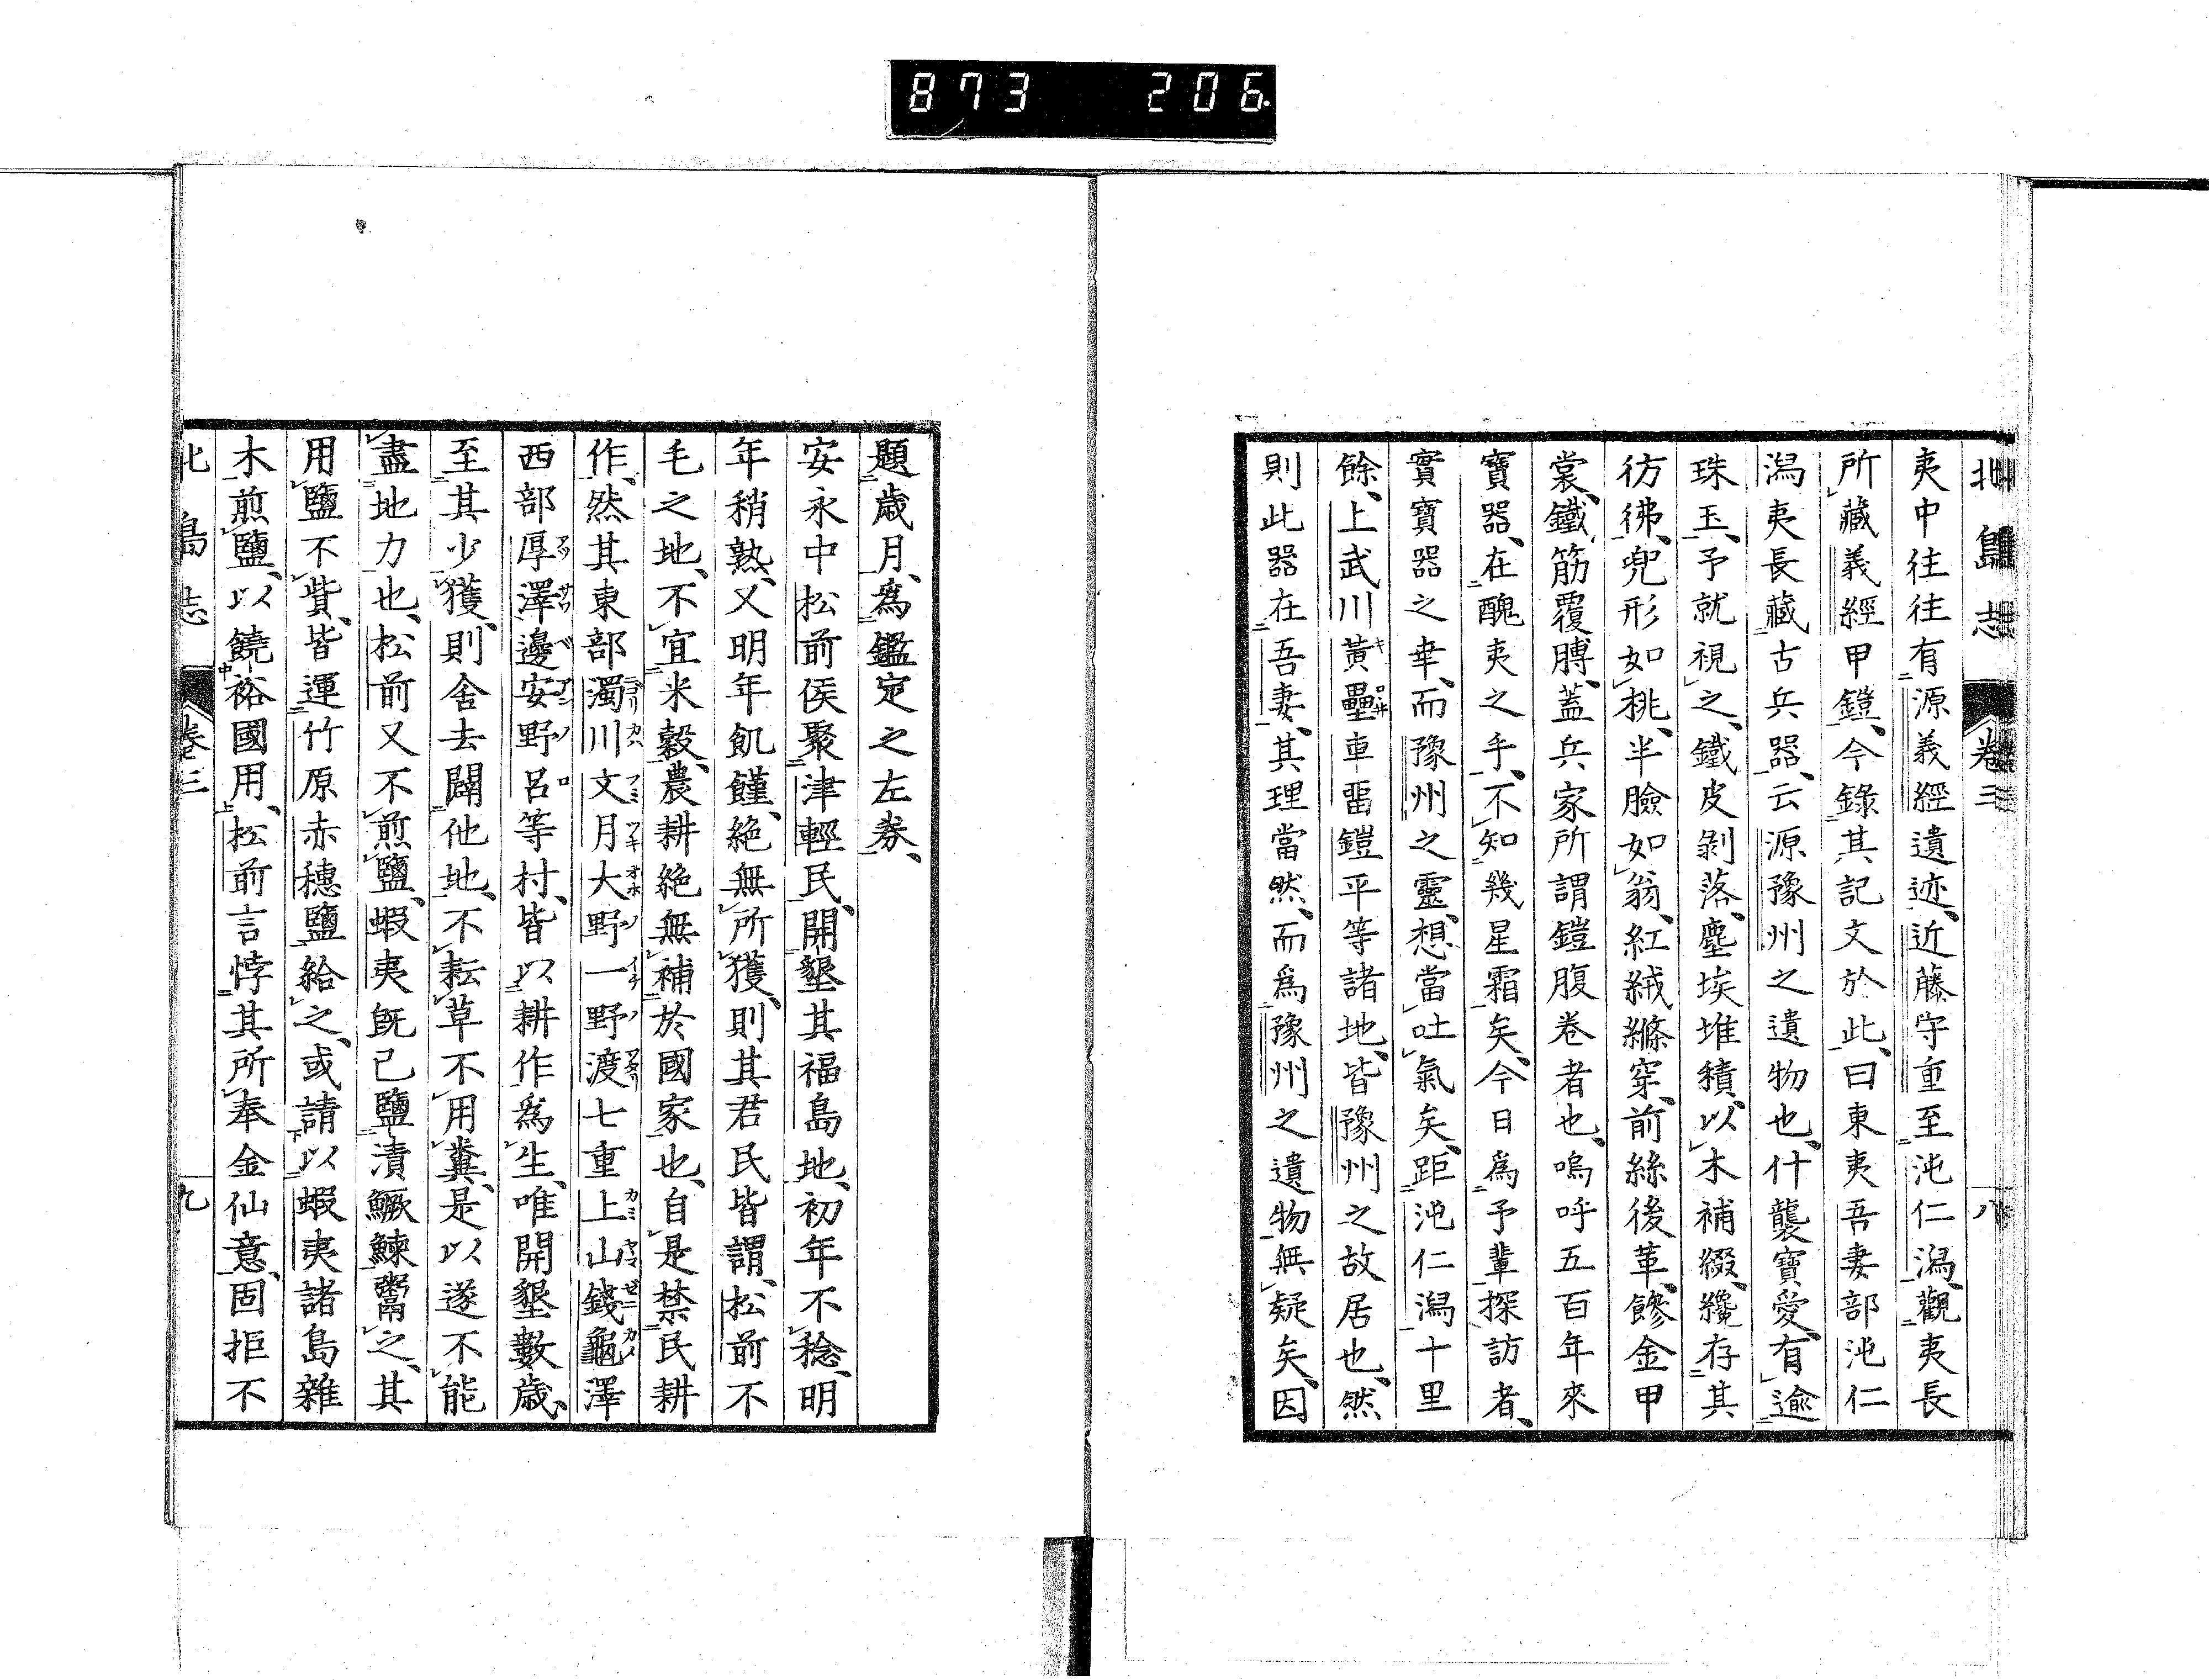 873 206
北島志 卷三 八
夷中往往有源義經遺迹、近藤守重至沌仁潟、觀夷長
所藏義經甲鎧、今錄其記文於此、曰東夷吾妻部沌仁
潟夷長藏古兵器、云源豫州之遺物也、什襲寶愛、有逾
珠玉、予就視之、鐵皮剝落、塵埃堆積、以木補綴、纔存其
彷彿、兜形如桃、半臉如翁、紅絨絛穿、前絲後革、飾金甲
裳、鐵筋覆膊、蓋兵家所謂鎧腹卷者也、嗚呼五百年來
寶器、在醜夷之手、不知幾星霜矣、今日爲予輩探訪者、
實寶器之幸、而豫州之靈、想當吐氣矣、距沌仁潟十里
餘、上武川黃壘車畱鎧平等諸地、皆豫州之故居也、然
則此器在吾妻、其理當然、而爲豫州之遺物無疑矣、因
題歲月、爲鑑定之左券、
安永中松前侯聚津輕民、開墾其福島地、初年不稔、明
年稍熟、又明年飢饉、絕無所獲、則其君民皆謂、松前不
毛之地、不宜米穀、農耕絕無補於國家也、自是禁民耕
作、然其東部濁川文月大野一野渡七重上山錢龜澤
西部厚澤邊安野呂等村、皆以耕作爲生、唯開墾數歲、
至其少獲、則舍去闢他地、不耘草不用糞、是以遂不能
盡地力也、松前又不煎鹽、蝦夷旣已鹽漬鱖鰊鬻之、其
用鹽不貲、皆運竹原赤穗鹽給之、或請以蝦夷諸島雜
木煎鹽、以饒裕國用、松前言悖其所奉金仙意、固拒不
北島志 卷三 九